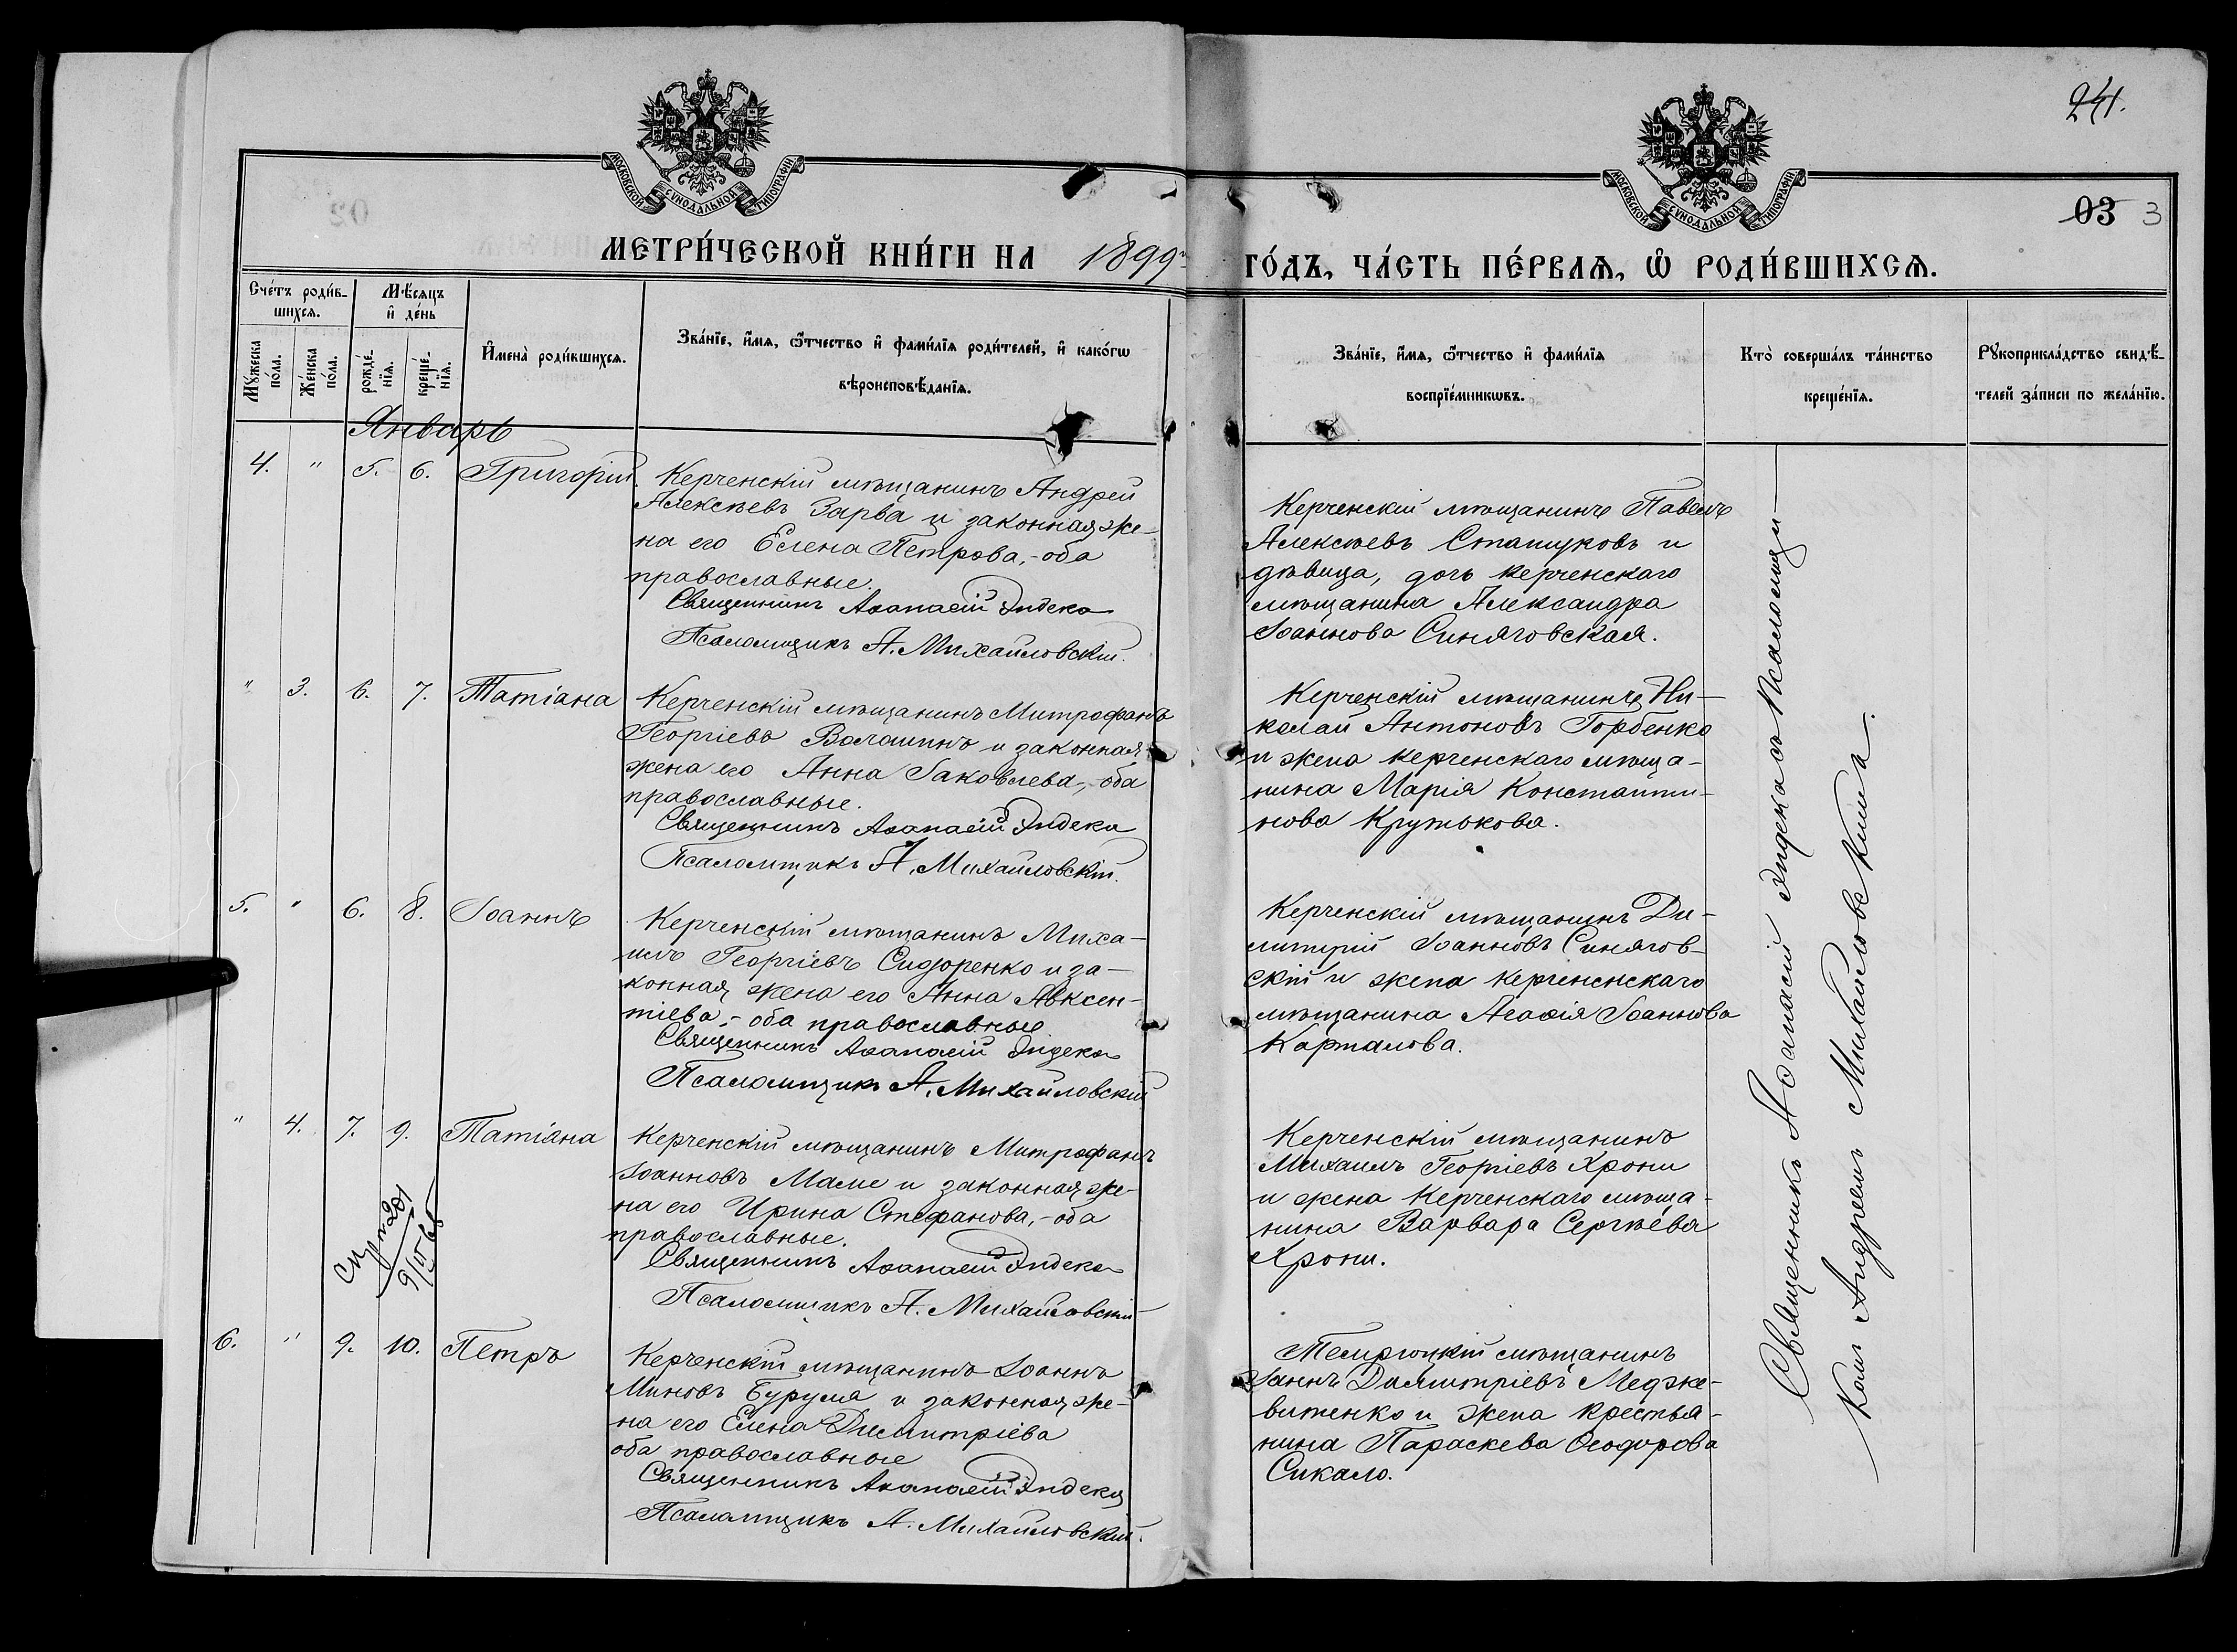 241.
МОСКОВСКОЙ СѴНОДАЛЬНОЙ ТИПОГРАФІИ
МОСКОВСКОЙ СѴНОДАЛЬНОЙ ТИПОГРАФІИ
03 3
МЕТРИ́ЧЕСКОЙ КНИ́ГИ НА 1899 ГО́ДЪ, ЧА́СТЬ ПЕ́РВАѦ, Ѡ҆ РОДИ́ВШИХСѦ.
Сче́тъ роди́в-
шихсѧ.
Мꙋ́жеска по́ла.
Же́нска по́ла.
Мѣ́сѧцъ
и҆ де́нь
рожде́-
нїѧ.
креще́-
нїѧ.
И҆мена̀ роди́вшихсѧ.
Зва́нїе, и҆́мѧ, ѻ҆́тчество и҆ фами́лїѧ роди́телей, и҆ како́гѡ
вѣроисповѣ́данїѧ.
Зва́нїе, и҆́мѧ, ѻ҆́тчество и҆ фами́лїѧ
воспрїе́мникѡвъ.
Кто̀ соверша́лъ та́инство
креще́нїѧ.
Рꙋкоприкла́дство свидѣ́-
телей за́писи по жела́нїю.
Январь
4. " 5. 6. Григорій.
Керченскій мѣщанинъ Андрей
Алексѣевъ Зарва и законная же-
на его Елена Петрова,-оба
православные.
Священникъ Аѳанасій Эндека
Псаломщикъ А. Михайловскій.
Керченскій мѣщанинъ Павелъ
Алексѣевъ Сташуковъ и
дѣвица, дочь керченскаго
мѣщанина Александра
Іоаннова Синяговская.
" 3. 6. 7. Татіана
Керченскій мѣщанинъ Митрофанъ
Георгіевъ Волошинъ и законная
жена его Анна Іаковлева,-оба
православные.
Священникъ Аѳанасій Эндека
Псаломщикъ А. Михайловскій.
Керченскій мѣщанинъ Ни-
колай Антоновъ Горбенко
и жена керченскаго мѣща-
нина Марія Константи-
нова Крутькова.
5. " 6. 8. Іоаннъ
Керченскій мѣщанинъ Миха-
илъ Георгіевъ Сидоренко и за-
конная жена его Анна Авксен-
тіева,-оба православные.
Священникъ Аѳанасій Эндека
Псаломщикъ А. Михайловскій
Керченскій мѣщанинъ Ди-
митрій Іоанновъ Синягов-
скій и жена керченскаго
мѣщанина Агаѳія Іоаннова
Карталова.
" 4. 7. 9. Татіана
Керченскій мѣщанинъ Митрофанъ
Іоанновъ Маме и законная же-
на его Ирина Стефанова,-оба
православные.
Священникъ Аѳанасій Эндека
Псаломщикъ А. Михайловскій
Керченскій мѣщанинъ
Михаилъ Георгіевъ Хрони
и жена керченскаго мѣща-
нина Варвара Сергѣева
Хрони.
6. " 9. 10. Петръ
Керченскій мѣщанинъ Іоаннъ
Миновъ Бурума и законная же-
на его Елена Димитріева
оба православные
Священникъ Аѳанасій Эндека
Псаломщикъ А. Михайловскій.
Темрюцкій мѣщанинъ
Іоаннъ Димитріевъ Медже-
витенко и жена крестья-
нина Параскева Ѳеодорова
Сикало.
Священникъ Аѳанасій Эндека съ Псаломщи-
комъ Андреемъ Михайловскимъ.